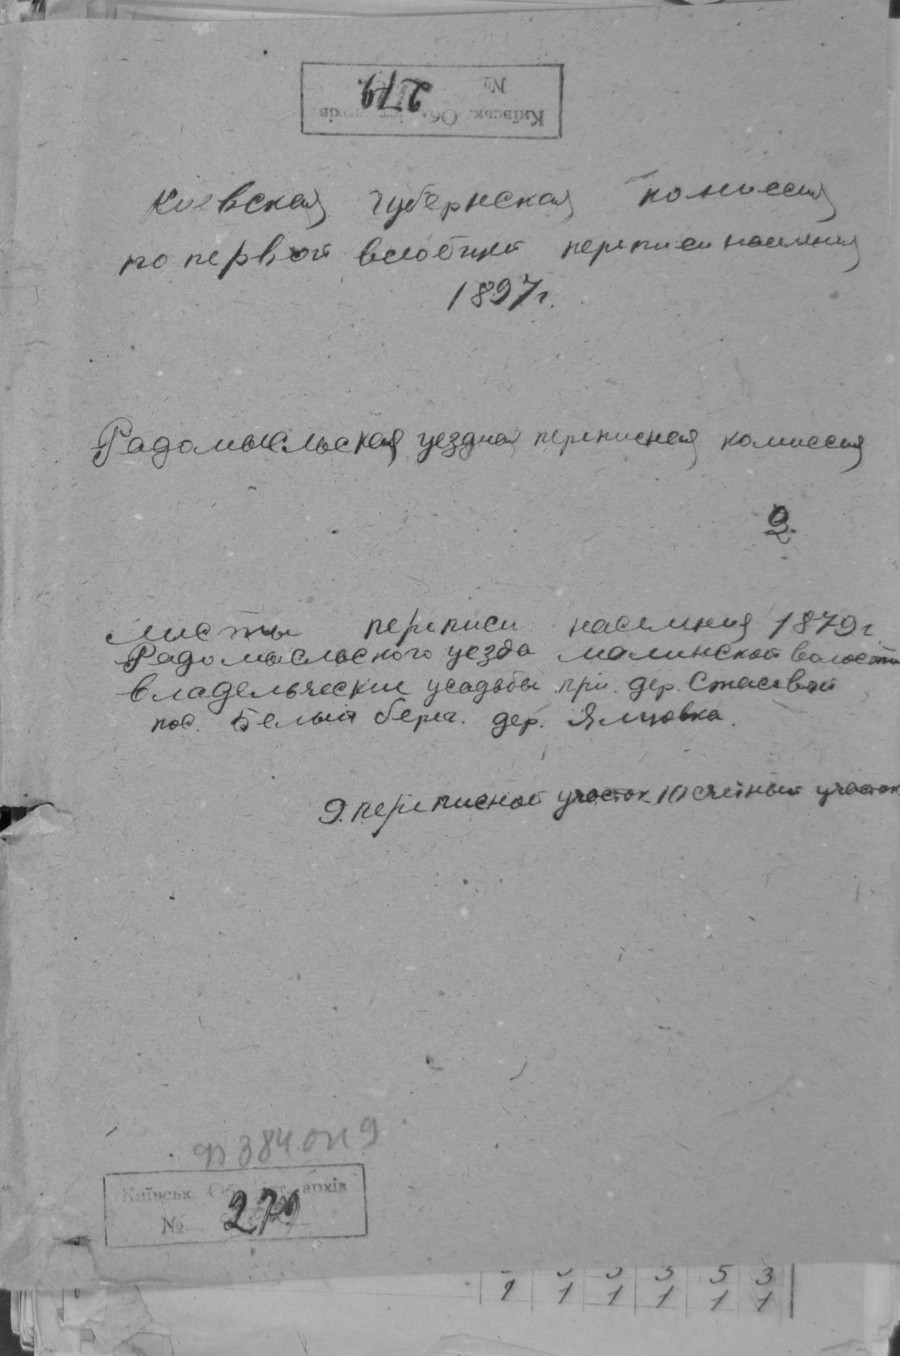 Київськ. Обл. іст. архів
№ 279.
Киевская губернская комиссия
по первой всеобщей переписи населения
1897г.
Радомысльская уездная переписная комиссия
9.
листы переписи населения 1879г
Радомысльского уезда малинской волости
владельческие усадьбы при. дер. Стасевой
пос. Белый берег. дер. Ялцовка.
9. переписной участок 10 счетный участок
Ф 384 оп 9
Київськ. Обл. іст. архів
№ 279
3 5 3
1 1 1 1 1 1